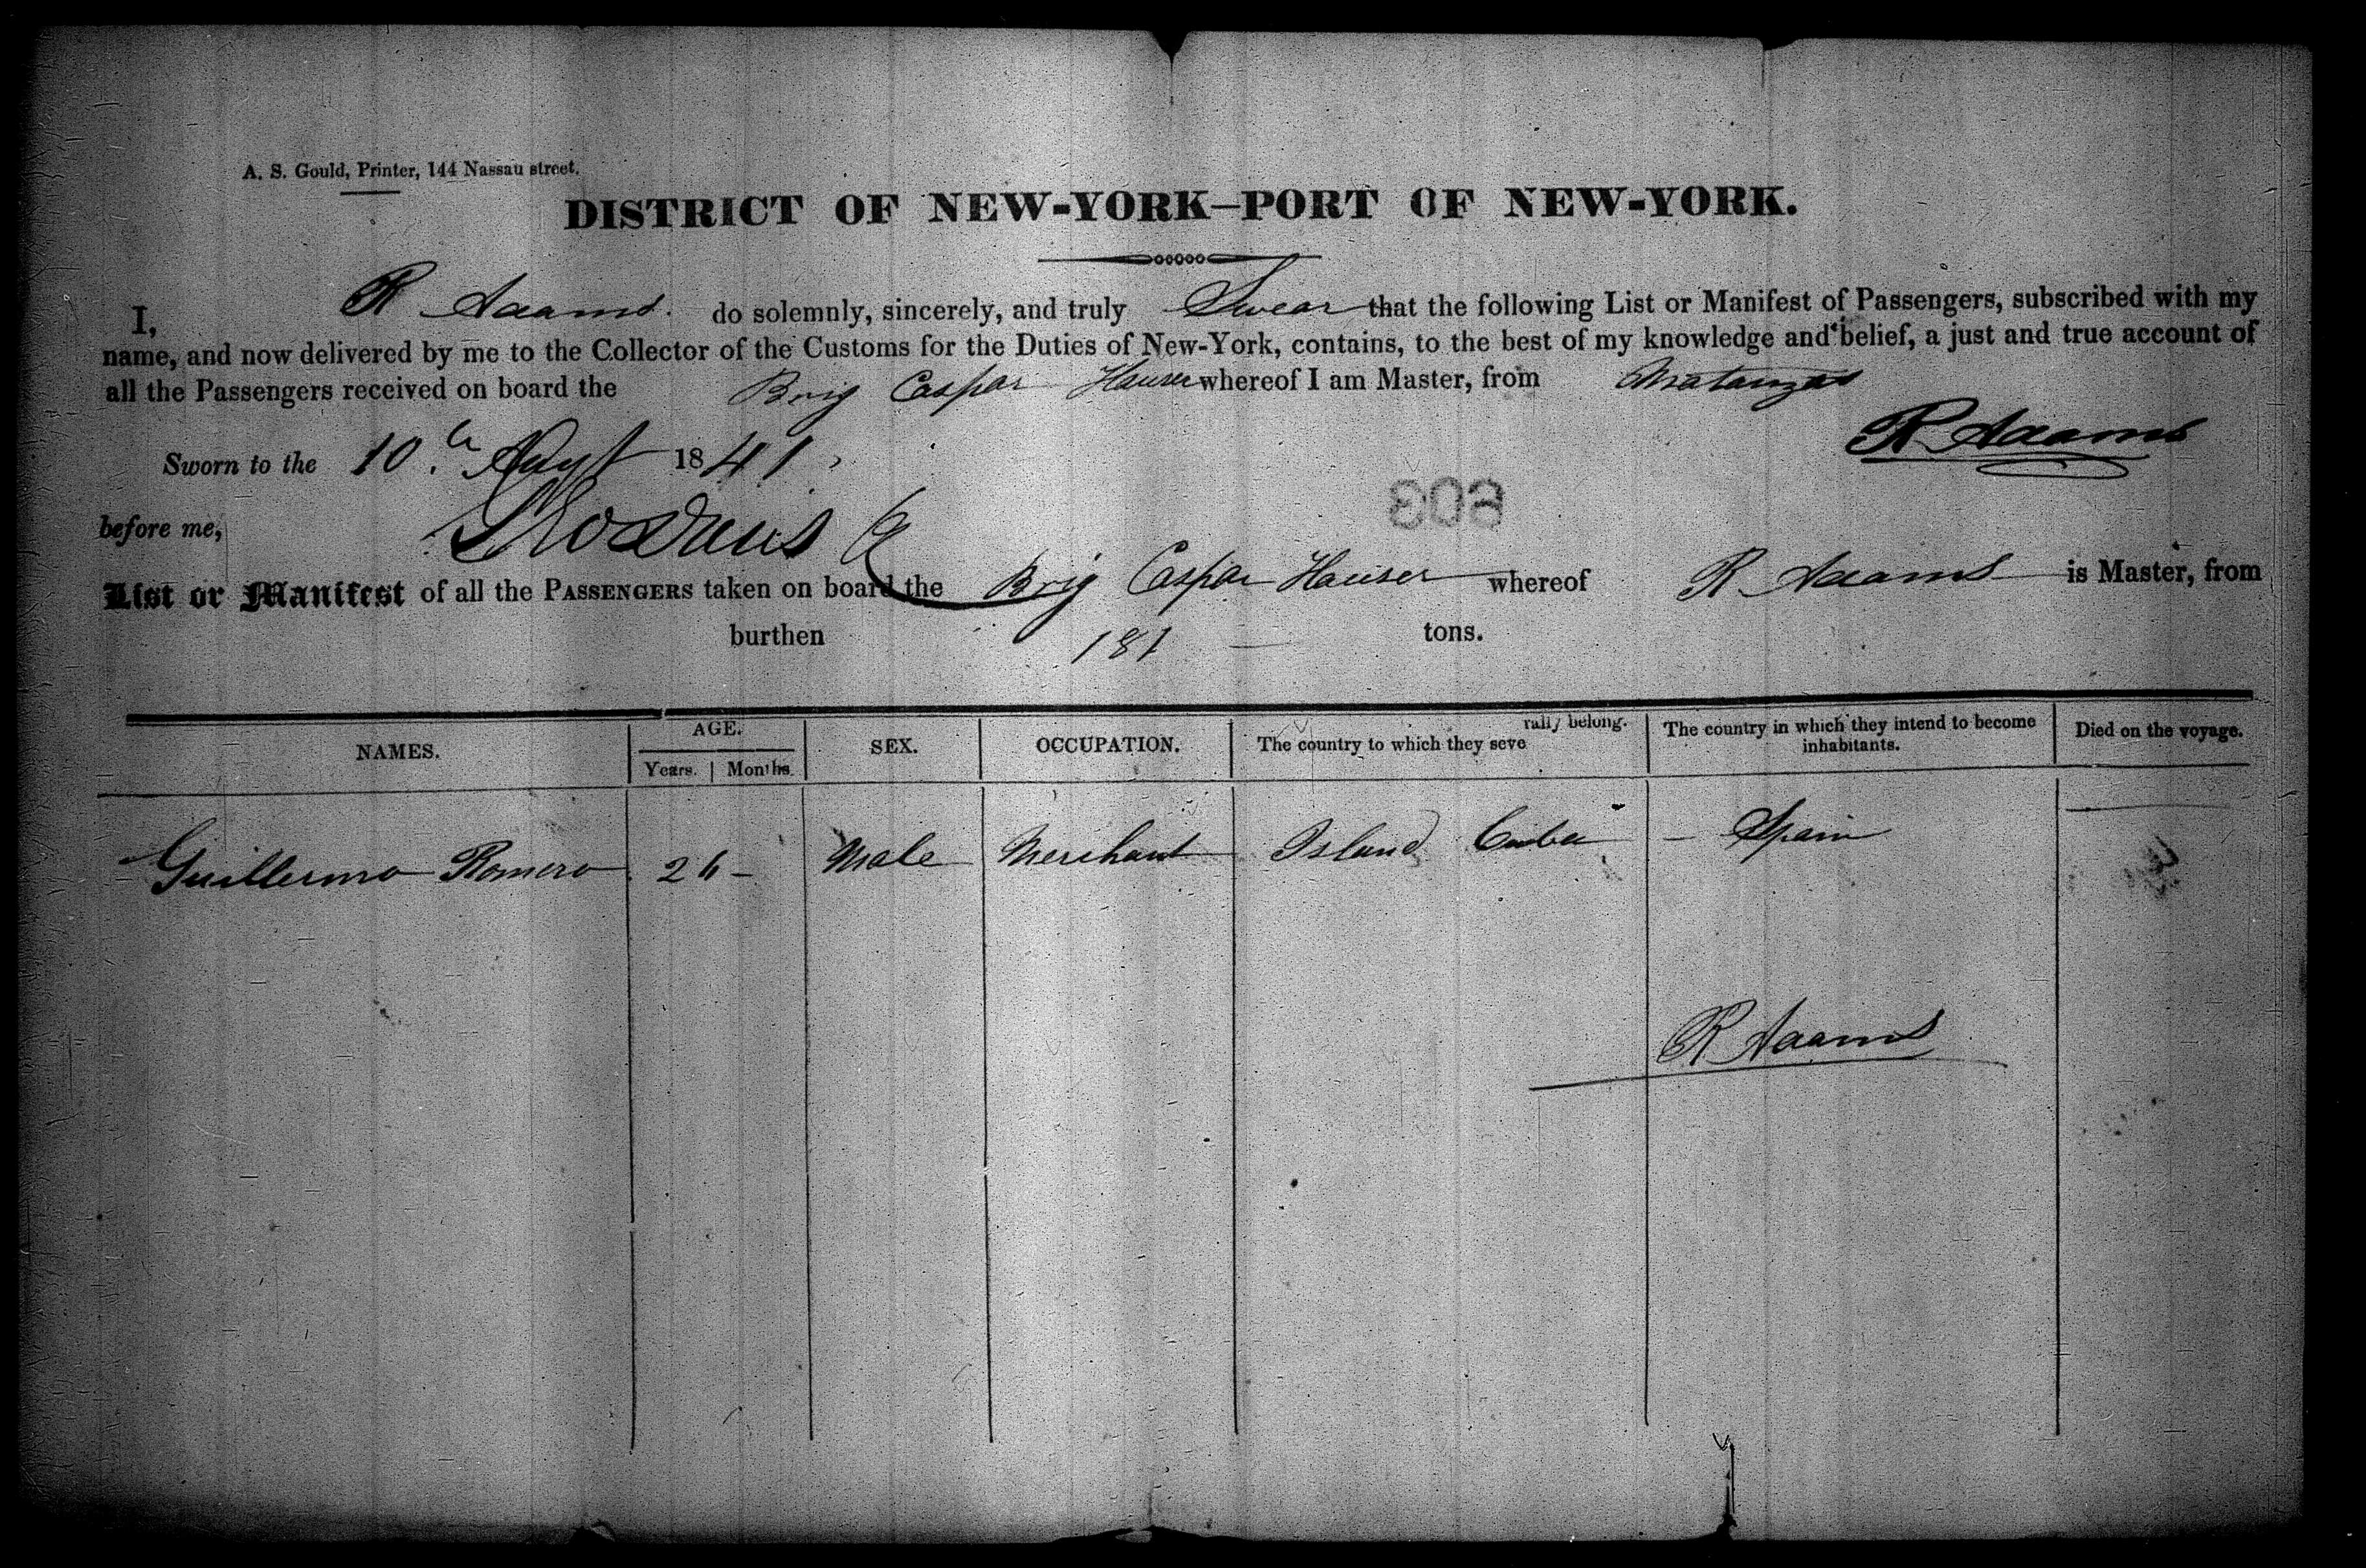 A. S. Gould, Printer, 144 Nassau street.
DISTRICT OF NEW-YORK—PORT OF NEW-YORK.
I, R Adams do solemnly, sincerely, and truly Swear that the following List or Manifest of Passengers, subscribed with my
name, and now delivered by me to the Collector of the Customs for the Duties of New-York, contains, to the best of my knowledge and belief, a just and true account of
all the Passengers received on board the Brig Caspar Hauser whereof I am Master, from Matanzas
R Adams
Sworn to the 10th Augt 1841
before me,
List or Manifest of all the PASSENGERS taken on board the Brig Caspar Hauser whereof R Adams is Master, from
burthen 181 tons.
NAMES. AGE. Years. Months. SEX. OCCUPATION. The country to which they seve rally belong. The country in which they intend to become inhabitants. Died on the voyage.
Guillermo Romero 26 – Male Merchant Island Cuba – Spain
R Adams